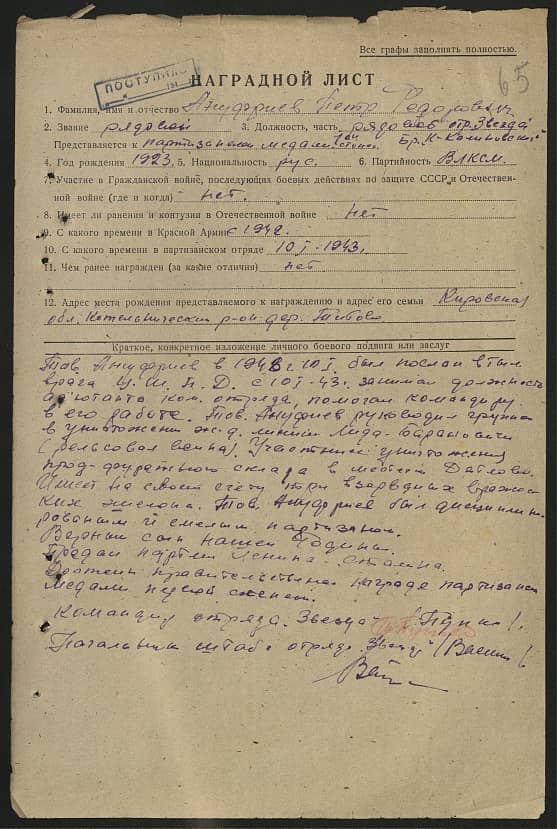 Все графы заполнять полностью.
65
ПОСТУПИЛО
НАГРАДНОЙ ЛИСТ
1. Фамилия, имя и отчество Ануфриев Петр Федорович
2. Звание рядовой 3. Должность, часть рядовой отр. Звезда
Бр. К-Калиновский
Представляется к партизанской медали 1ой степени
4. Год рождения 1923 5. Национальность рус. 6. Партийность ВЛКСМ.
7. Участие в Гражданской войне, последующих боевых действиях по защите СССР и Отечествен-
ной войне (где и когда) нет.
8. Имеет ли ранения и контузии в Отечественной войне нет
9. С какого времени в Красной Армии с 1942.
10. С какого времени в партизанском отряде 10 I-1943.
11. Чем ранее награжден (за какие отличия) нет
12. Адрес места рождения представляемого к награждению и адрес его семьи Кировская
обл. Котельнический р-он дер. Титово
Краткое, конкретное изложение личного боевого подвига или заслуг
Тов. Ануфриев в 1943 г 10 I. был послан в тыл
врага Ц. Ш. П. Д. с 10 I-43. занимал должность
адъютанта ком. отряда, помогал командиру
в его работе. Тов. Ануфриев руководил группой
в уничтожении ж.д. линии Лида-Барановичи
(рельсовая война). Участник уничтожения
прод-фуражного склада в
Имеет на своем счету три взорванных вражес
ких эшелона. Тов. Ануфриев был дисциплини
рованым и смелым партизаном.
Верный сын нашей Родины.
Предан партии Ленина-Сталина.
Достоин правительственной награде партизанск
медали первой степени.
Командир отряда. Звезда
Начальник штаба отряда Звезда